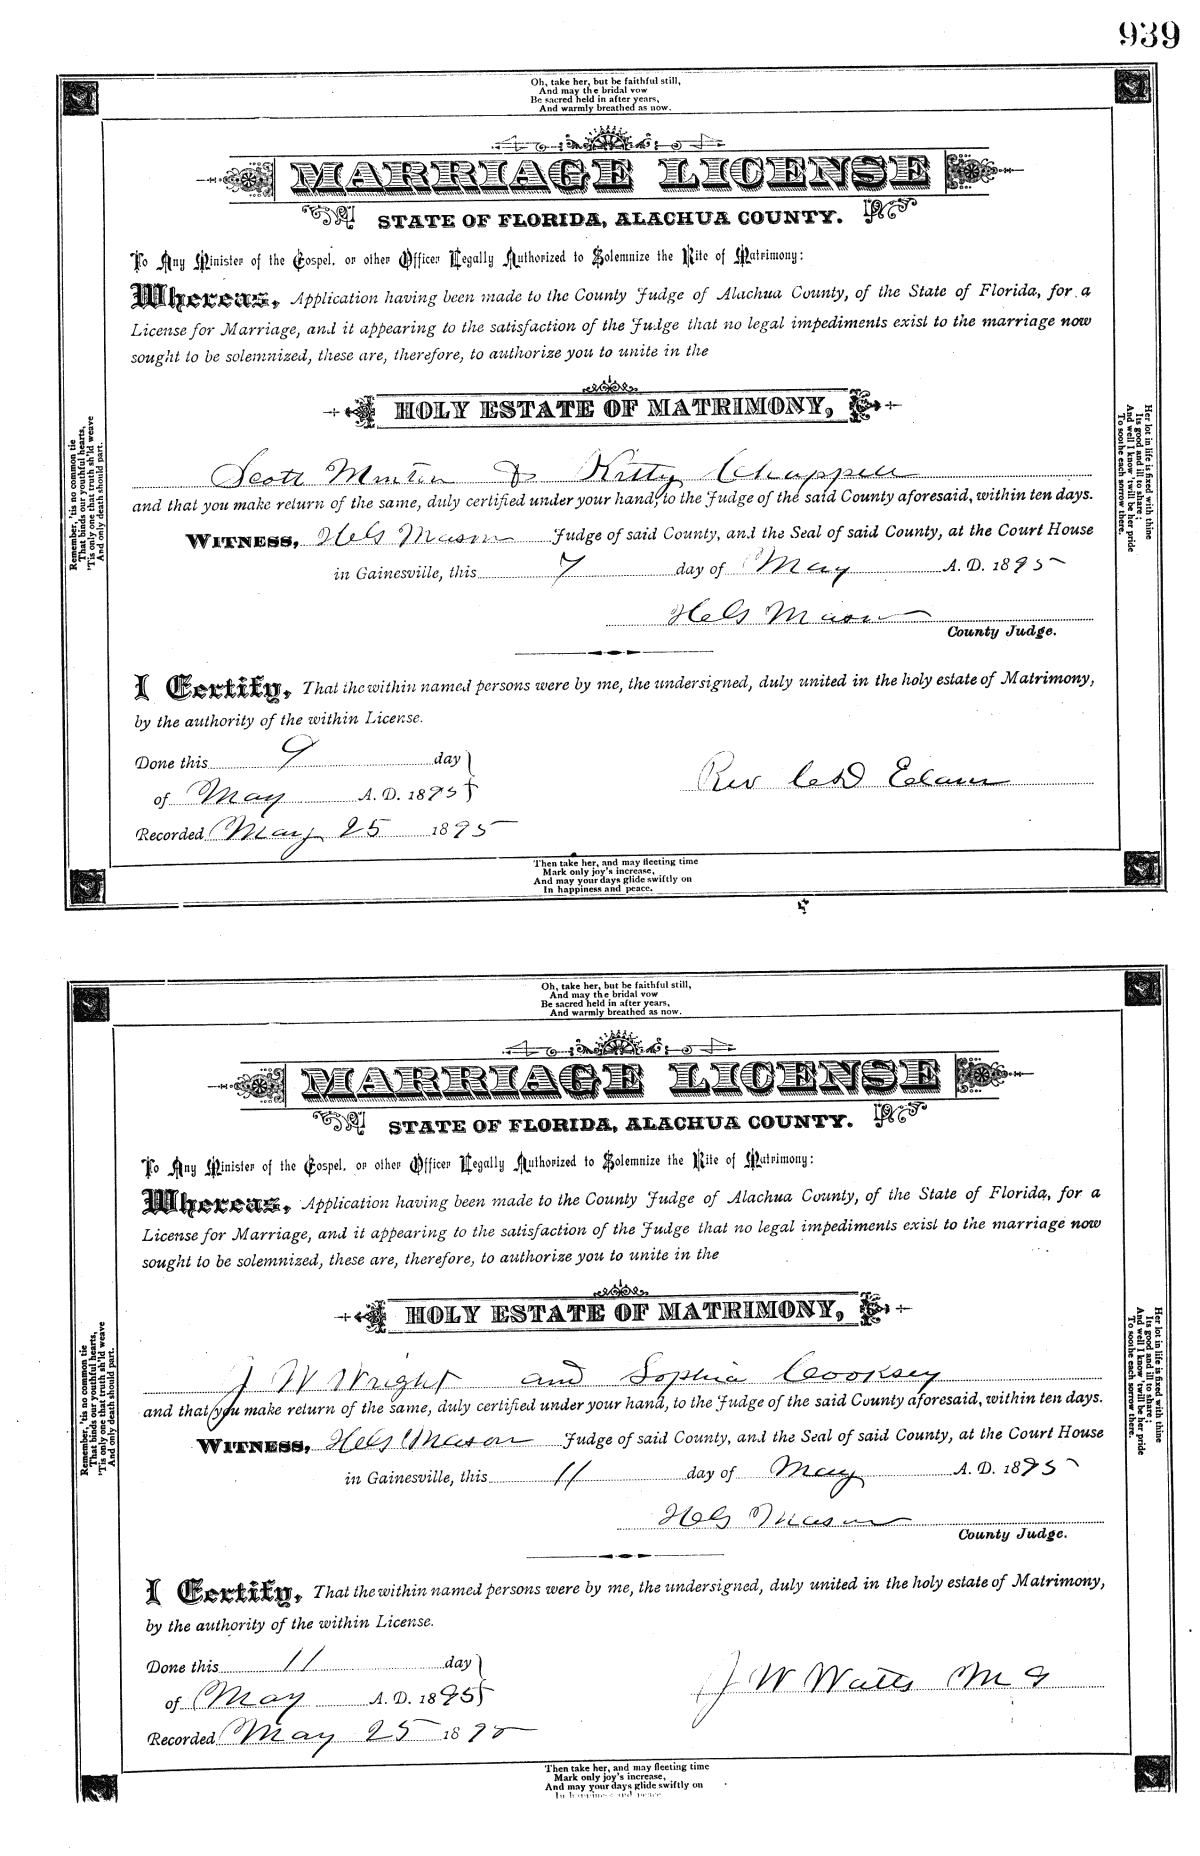 939
Oh, take her, but be faithful still,
And may the bridal vow
Be sacred held in after years,
And warmly breathed as now.
MARRIAGE LICENSE
STATE OF FLORIDA, ALACHUA COUNTY.
To Any Minister of the Gospel, or other Officer Legally Authorized to Solemnize the Rite of Matrimony:
Whereas, Application having been made to the County Judge of Alachua County, of the State of Florida, for a
License for Marriage, and it appearing to the satisfaction of the Judge that no legal impediments exist to the marriage now
sought to be solemnized, these are, therefore, to authorize you to unite in the
HOLY ESTATE OF MATRIMONY,
Scott Minton & Kitty Chappell
and that you make return of the same, duly certified under your hand, to the Judge of the said County aforesaid, within ten days.
WITNESS, Mason Judge of said County, and the Seal of said County, at the Court House
in Gainesville, this 7 day of May A. D. 1895
Mason
County Judge.
I Certify, That the within named persons were by me, the undersigned, duly united in the holy estate of Matrimony,
by the authority of the within License.
Done this 9 day
of May A. D. 1895
Rev
Recorded May 25 1895
Then take her, and may fleeting time
Mark only joy's increase,
And may your days glide swiftly on
In happiness and peace.
Remember, 'tis no common tie
That binds our youthful hearts,
'Tis only one that truth sh'ld weave
And only death should part.
Her lot in life is fixed with thine
Its good and ill to share;
And well I know 'twill be her pride
To soothe each sorrow there.
Oh, take her, but be faithful still,
And may the bridal vow
Be sacred held in after years,
And warmly breathed as now.
MARRIAGE LICENSE
STATE OF FLORIDA, ALACHUA COUNTY.
To Any Minister of the Gospel, or other Officer Legally Authorized to Solemnize the Rite of Matrimony:
Whereas, Application having been made to the County Judge of Alachua County, of the State of Florida, for a
License for Marriage, and it appearing to the satisfaction of the Judge that no legal impediments exist to the marriage now
sought to be solemnized, these are, therefore, to authorize you to unite in the
HOLY ESTATE OF MATRIMONY,
J W Wright and Sophia Cooksey
and that you make return of the same, duly certified under your hand, to the Judge of the said County aforesaid, within ten days.
WITNESS, Mason Judge of said County, and the Seal of said County, at the Court House
in Gainesville, this 11 day of May A. D. 1895
Mason
County Judge.
I Certify, That the within named persons were by me, the undersigned, duly united in the holy estate of Matrimony,
by the authority of the within License.
Done this 11 day
of May A. D. 1895
J W Watts M G
Recorded May 25 1895
Then take her, and may fleeting time
Mark only joy's increase,
And may your days glide swiftly on
In happiness and peace
Remember, 'tis no common tie
That binds our youthful hearts,
'Tis only one that truth sh'ld weave
And only death should part.
Her lot in life is fixed with thine
Its good and ill to share;
And well I know 'twill be her pride
To soothe each sorrow there.